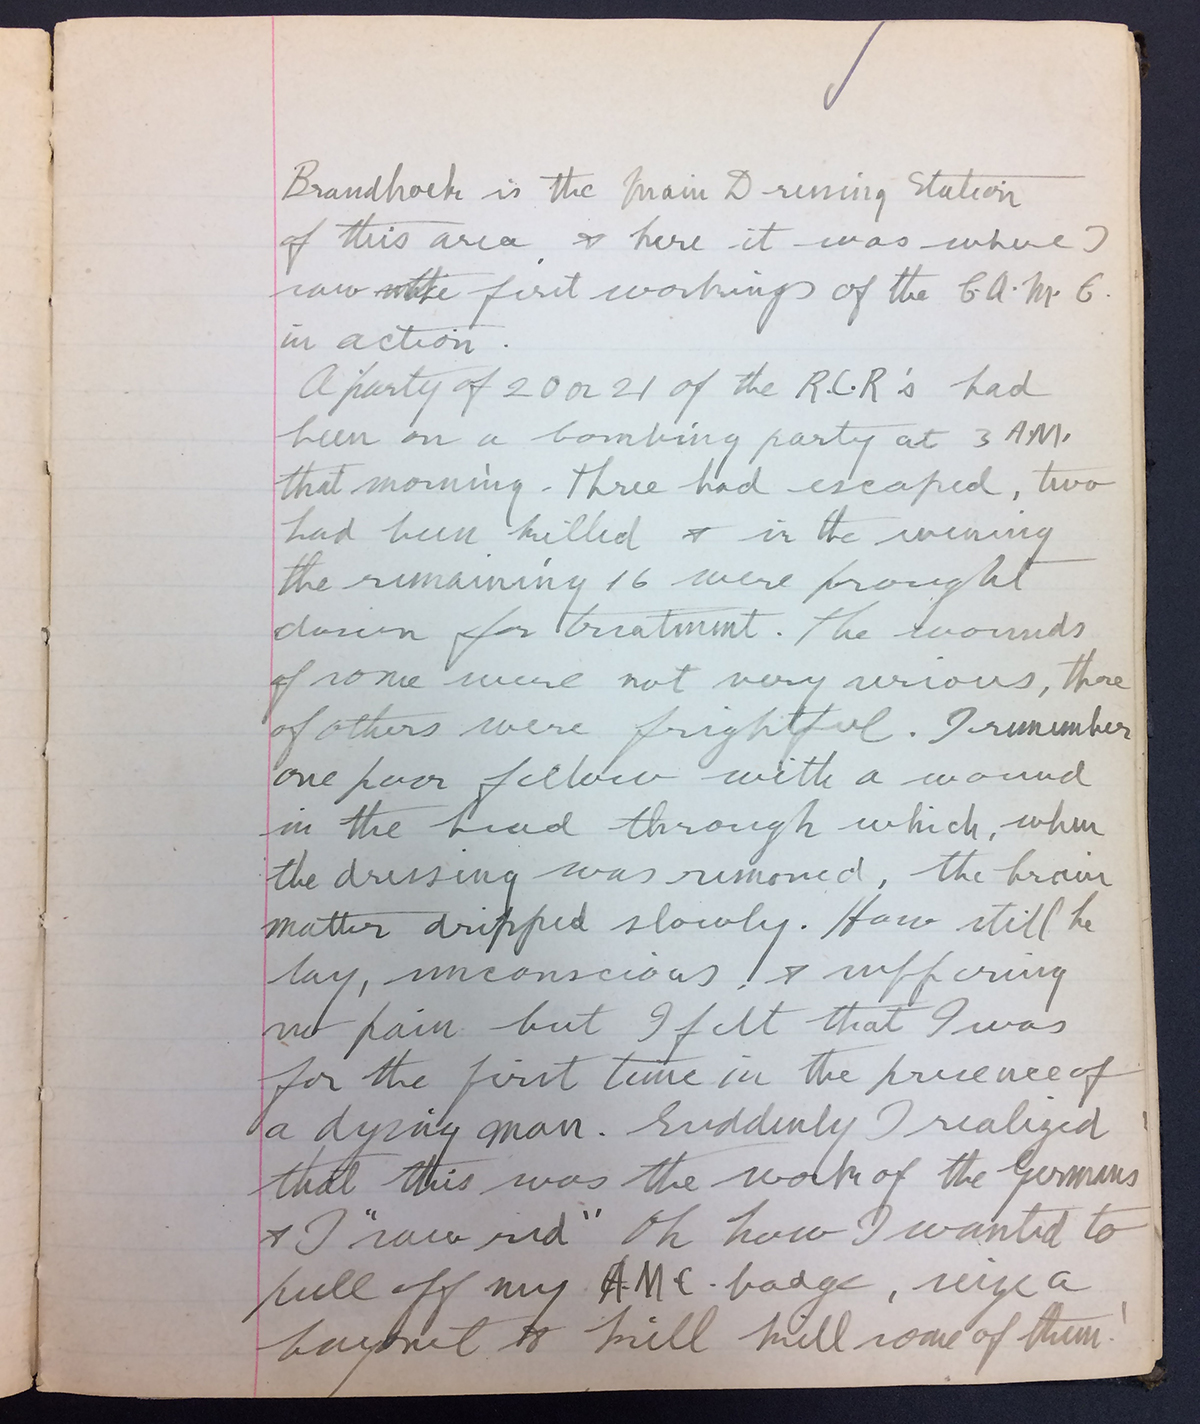 Brandhoek is the Main Dressing Station
of this area & here it was where I
saw the first workings of the C.A.M.C.
in action.
A party of 20 or 21 of the R.C.R's had
been on a bombing party at 3 A.M.
that morning. Three had escaped, two
had been killed & in the evening
the remaining 16 were brought
down for treatment. The wounds
of some were not very serious, those
of others were frightful. I remember
one poor fellow with a wound
in the head through which, when
the dressing was removed, the brain
matter dripped slowly. How still he
lay, unconscious! & suffering
no pain but I felt that I was
for the first time in the presence of
a dying man. Suddenly I realized
that this was the work of the Germans
& I "saw red" Oh how I wanted to
pull off my A.M.C. badge, seize a
bayonet & kill kill some of them!